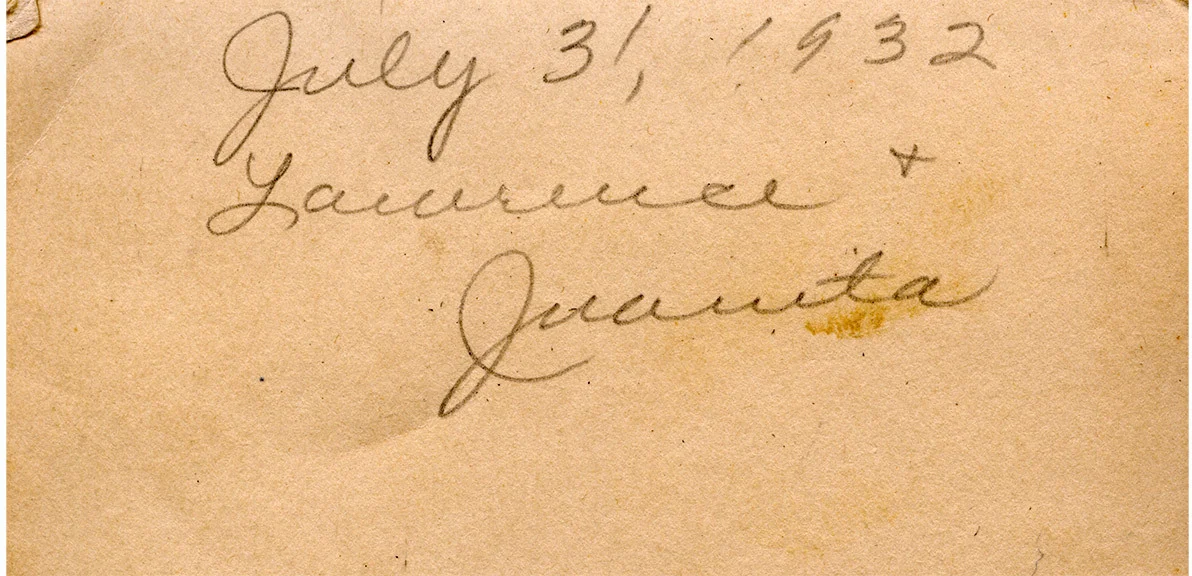 July 31, 1932
Lawrence +
Juanita